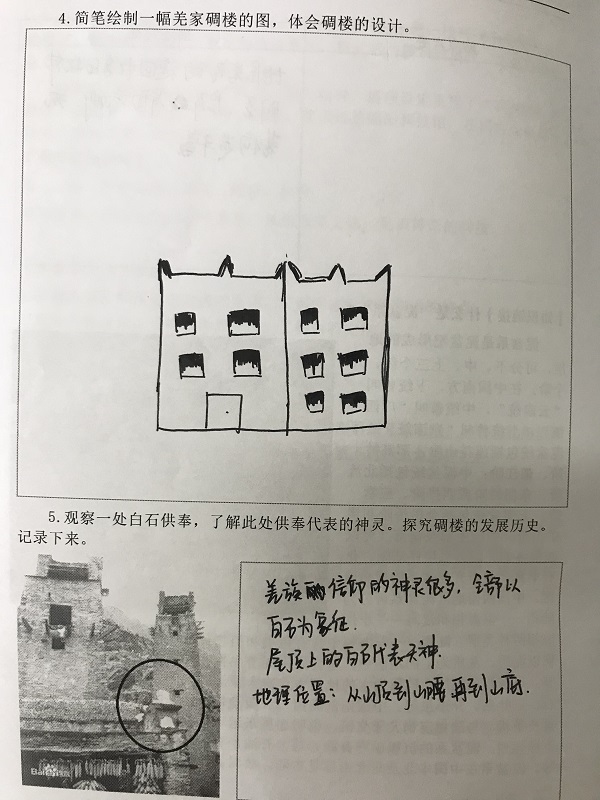 4.简笔绘制一幅羌家碉楼的图，体会碉楼的设计。
5.观察一处白石供奉，了解此处供奉代表的神灵。探究碉楼的发展历史。
记录下来。
羌族信仰的神灵很多，全部以
白石为象征.
屋顶上的白石代表天神.
地理位置：从山顶到山腰再到山底.
Baidu百科